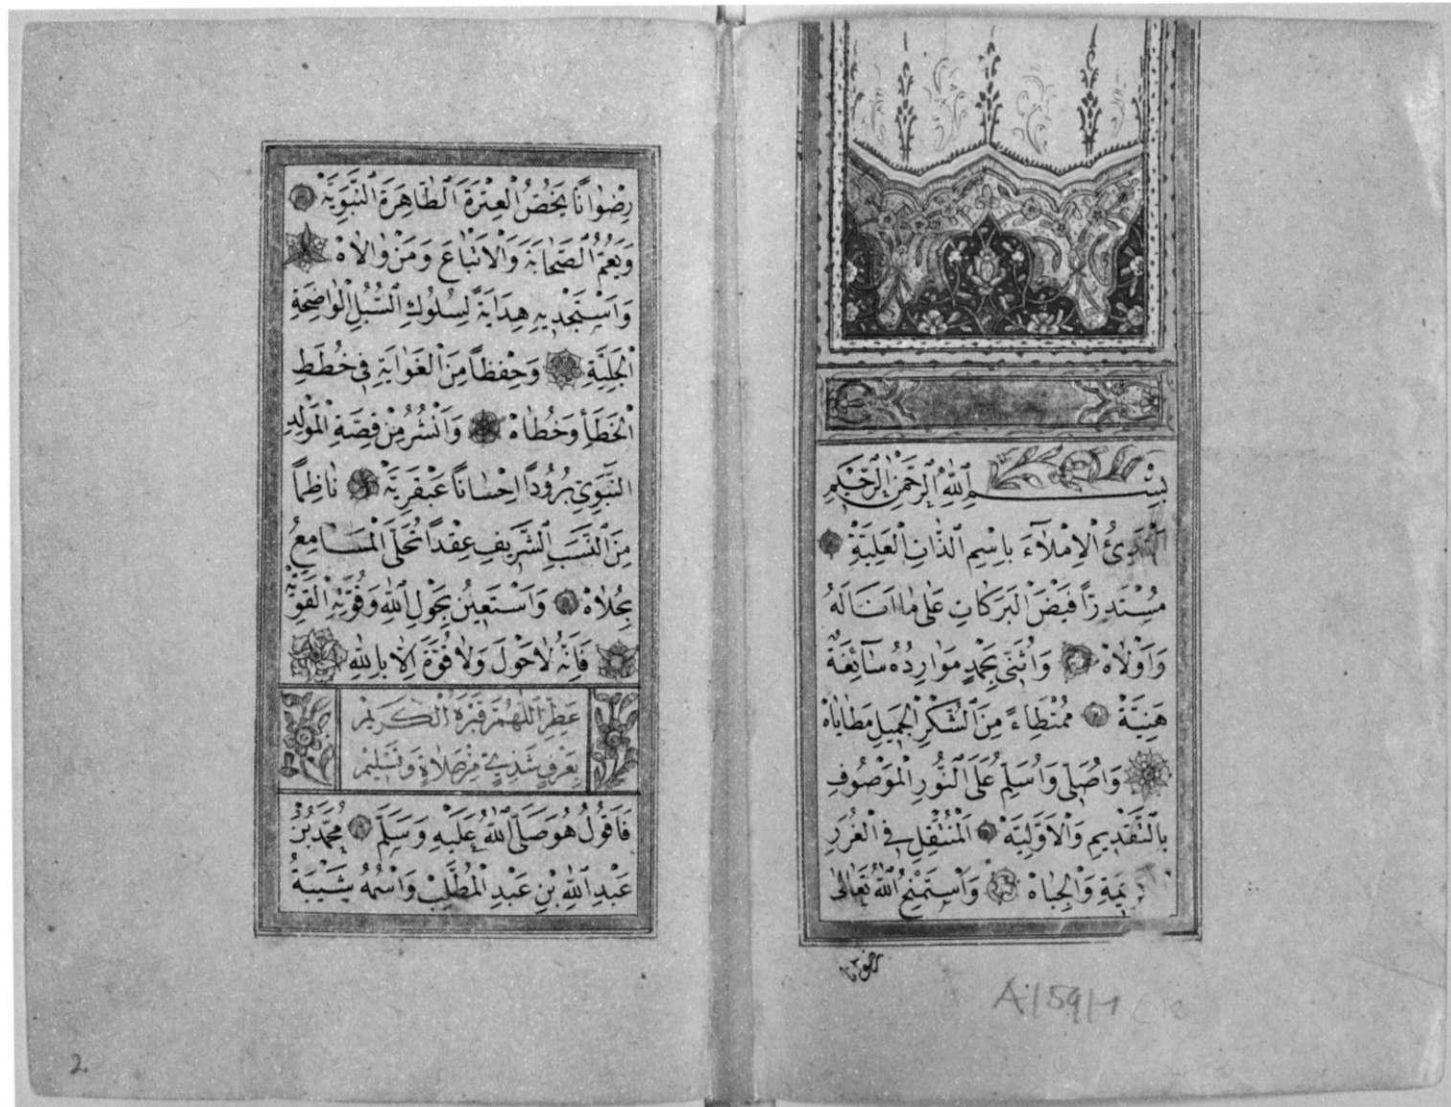 بِسْمِ اللّٰهِ الرَّحْمٰنِ الرَّحِيْمِ
اَبْتَدِئُ الْاِمْلَآءَ بِاسِمِ الذَّاتِ الْعَلِيَّةْ
مُسْتَدِرًّا فَيْضَ الْبَرَكَاتِ عَلٰى مَا اَنَالَهُ
وَاَوْلَاهْ وَاُثَنّٖى بِحَمْدٍ مَوَارِدُهُ سَآئِغَةٌ
هَنِيَّةْ مُمْتَطِاءً مِنَ الشُّكْرِ الْجَمٖيلِ مَطَايَاهْ
وَاُصَلّٖى وَاُسَلِّمُ عَلَى النُّورِ الْمَوْصُوفِ
بِالتَّقْدٖيمِ وَالْاَوَّلِيَّةْ الْمُنْتَقِلِ فِى الْغُرَرِ
الْكَرٖيمَةِ وَالْجِبَاهْ وَاَسْتَمْنِحُ اللّٰهَ تَعَالٰى
رضوانا
A.159/1
رِضْوَانًا يَخُصُّ الْعِتْرَةَ الطَّاهِرَةَ النَّبَوِيَّةْ
وَيَعُمُّ الصَّحَابَةَ وَالْاَتْبَاعَ وَمَنْ وَالَاهْ
وَاَسْتَجْدٖيهِ هِدَايَةً لِسُلُوكِ السُّبُلِ الْوَاضِحَةِ
الْجَلِيَّةِ وَحِفْظاً مِنَ الْغَوَايَةِ فٖى خُطَطِ
الْخَطَأِ وَخُطَاهْ وَاَنْشُرُ مِنْ قِصَّةِ الْمَوْلِدِ
النَّبَوِيِّ بُرُودًا اِحْسَاناً عَبْقَرِيَّةْ نَاظِمًا
مِنَ النَّسَبِ الشَّرٖيفِ عِقْداً تُحَلَّى الْمَسَامِعُ
بِحُلَاهْ وَاَسْتَعٖينُ بِحَوْلِ اللّٰهِ وَقُوَّتِهِ الْقَوِيَّةْ
فَاِنَّهُ لَاحَوْلَ وَلَا قُوَّةَ اِلَّا بِاللّٰهِ
عَطِّرِ اللّٰهُمَّ قَبْرَهُ الْكَرٖيمْ
بِعَرْفٍ شَذِيٍّ مِنْ صَلَاةٍ وَتَسْلٖيمْ
فَاَقُولُ هُوَ صَلَّى اللّٰهُ عَلَيْهِ وَسَلَّمَ مُحَمَّدُ بْنُ
عَبْدِ اللّٰهِ بْنِ عَبْدِ الْمُطَّلِبْ وَاسْمُهُ شَيْبَةُ
2.